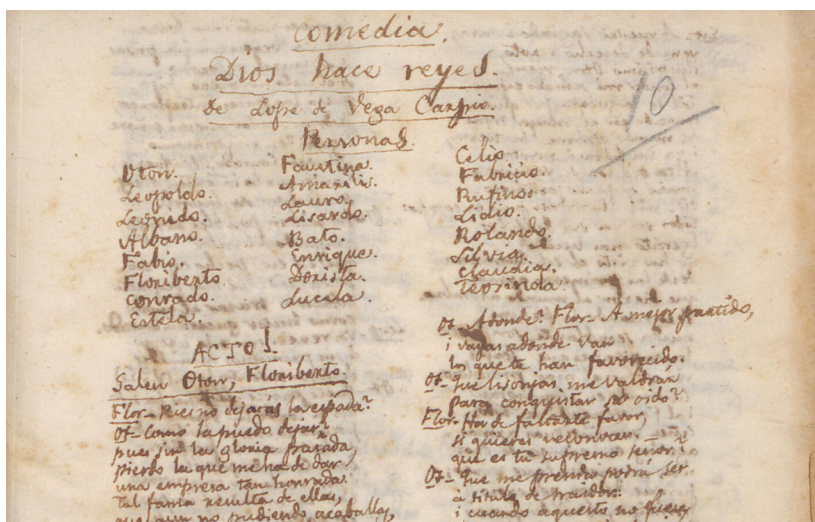 comedia.
Dios hace reyes.
de Lope de Vega Carpio.
10
Personas.
Oton.
Leopoldo.
Leonido.
Albano.
Fabio.
Floriberto
Conrado.
Estela.
Faustina.
Amarilis.
Lauro.
Lisardo.
Bato.
Enrique.
Dorista.
Lucela.
Celio.
Fabricio.
Rufino.
Lidio.
Rolando.
Silvia.
Claudia.
Teosinda.
ACTO I.
Salen Oton, Floriberto.
Flor- Pues no dejarás la espada?
Ot- Como la puedo dejar?
pues sin la gloria pasada,
pierdo la que me ha de dar
una empresa tan honrada.
Tal fama resulta de ellas,
que aun no pudiendo acaballas,
Ot- Adonde? Flor- A mejor partido,
i vayas adonde van
los que te han favorecido.
Ot- Que lisonjas me valdrán
para conquistar su oido?
Flor- Ha de faltarte favor,
si quieres
que es tu supremo señor?
Ot- Que me prenda podrá ser
a titulo de traidor:
i cuando aquesto no fuese